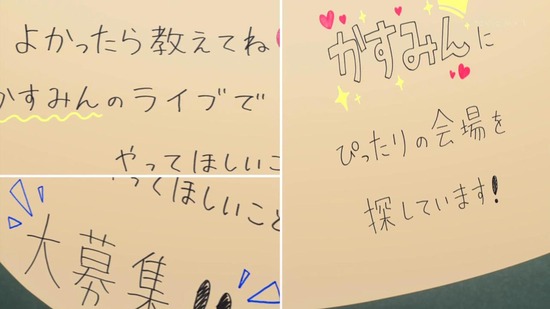 よかったら教えてね
かすみんのライブで
やってほしいこ
ってほしいこと
大募集!!
かすみんに
ぴったりの会場を
探しています!